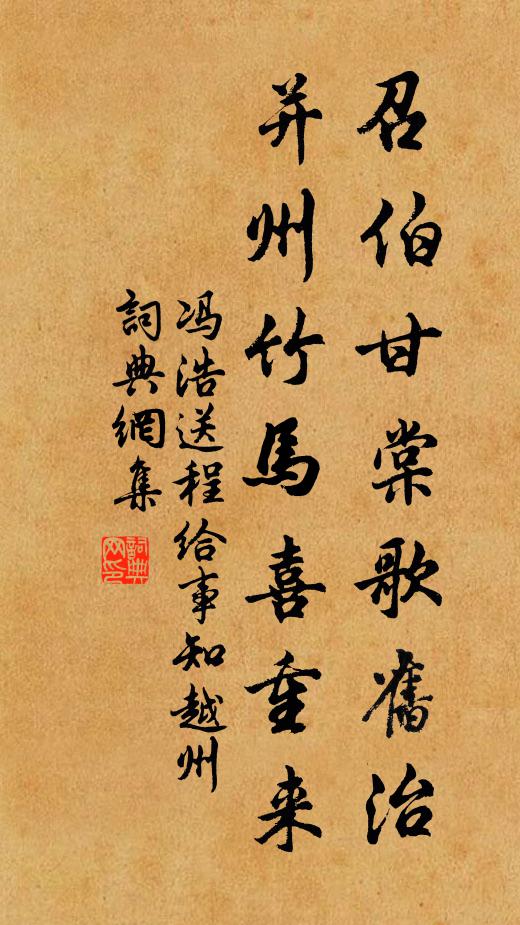 召伯甘棠歌舊治
并州竹馬喜重来
冯浩送程给事知越州
詞典網集
詞典网印